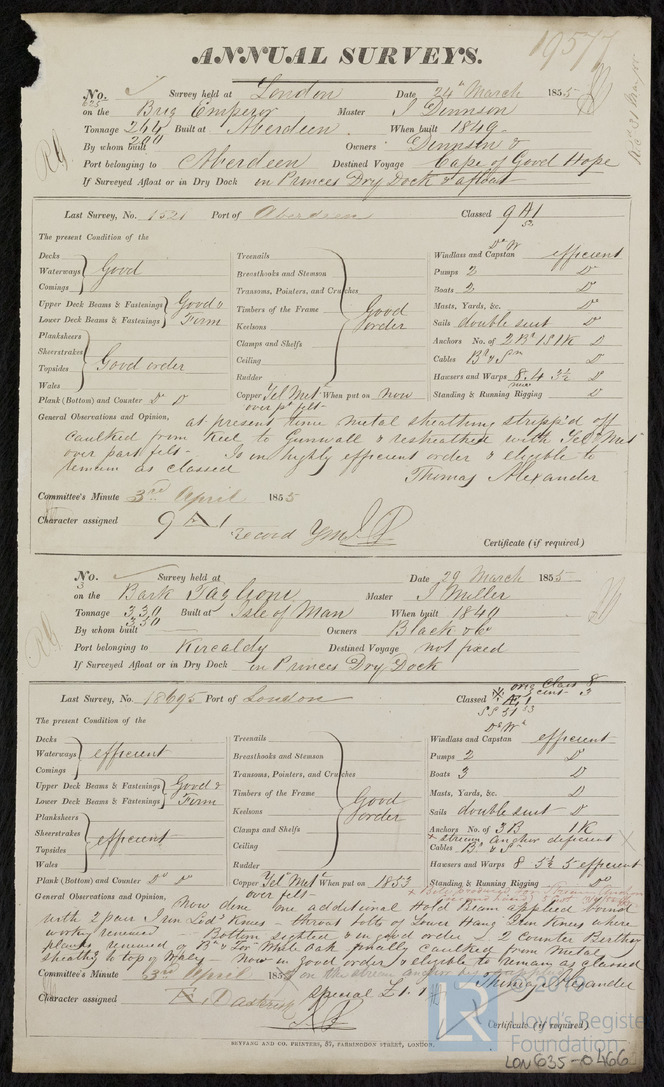 19577
ANNUAL SURVEYS.
No. Survey held at London Date 24th March 1855
on the Brig Emperor Master J Dennson
Tonnage 264 Built at Aberdeen When built 1849
By whom built Owners Dennson &
Port belonging to Aberdeen Destined Voyage Cape of Good Hope
If Surveyed Afloat or in Dry Dock in Princes Dry Dock & afloat
Last Survey, No. 1521 Port of Aberdeen Classed 9 A1
The present Condition of the
Decks
Waterways Good
Comings
Upper Deck Beams & Fastenings Good &
Lower Deck Beams & Fastenings Firm
Planksheers
Sheerstrakes
Topsides Good order
Wales
Plank (Bottom) and Counter Do Do
Treenails
Breasthooks and Stemson
Transoms, Pointers, and Crutches
Timbers of the Frame Good
Keelsons order
Clamps and Shelfs
Ceiling
Rudder
Copper Yel Metl When put on now
over pt felt
Windlass and Capstan efficient
Pumps 2 Do
Boats 2 Do
Masts, Yards, &c. Do
Sails double suit Do
Anchors No. of 2 Br 1S 1K Do
Cables Do
Hawsers and Warps 8.4 3½ Do
Standing & Running Rigging Do
General Observations and Opinion, at present time metal sheathing stripp'd off
caulked from Keel to Gunwall & resheathed with Yel Metl
over part felt - Is in highly efficient order & eligible to
remain as classed
Thomas Alexander
Committee's Minute 3rd April 1855
Character assigned 9 A 1
record YM
Certificate (if required)
No. Survey held at Date 29 March 1855
on the Bark Taglioni Master J Miller
Tonnage 330 Built at Isle of Man When built 1840
330
By whom built Owners Black & Co
Port belonging to Kircaldy Destined Voyage not fixed
If Surveyed Afloat or in Dry Dock in Princes Dry Dock
Last Survey, No. 18695 Port of London Classed Æ1
The present Condition of the
Decks
Waterways efficient
Comings
Upper Deck Beams & Fastenings Good &
Lower Deck Beams & Fastenings Firm
Planksheers
Sheerstrakes
Topsides efficient
Wales
Plank (Bottom) and Counter Do Do
Treenails
Breasthooks and Stemson
Transoms, Pointers, and Crutches
Timbers of the Frame
Keelsons Good
Clamps and Shelfs order
Ceiling
Rudder
Copper Yel Metl When put on 1853
over felt
Windlass and Capstan efficient
Pumps 2 Do
Boats 3 Do
Masts, Yards, &c. Do
Sails double suit Do
Anchors No. of 3 B 1K
& stream anchor deficient
Cables
Hawsers and Warps 8 5½ 5 efficient
Standing & Running Rigging Do
General Observations and Opinion, Now done one additional Hold Beam applied
with 2 pair Iron Led Knees throat bolts of Lower Hang Iron Knees where
working renewed - Bottom sighted & in good order - 2 Counter Berthing
planks renewed of White Oak finally caulked from Metal
sheathg to top of Wales - now in good order & eligible to remain as classed
on the stream anchor being supplied
Thomas Alexander
Committee's Minute 3rd April 1855
Character assigned
Special £1.1
Certificate (if required)
SEYFANG AND CO. PRINTERS, 57, FARRINGDON STREET, LONDON.
© 2019
LR
Lloyd's Register
Foundation
LON635-0466